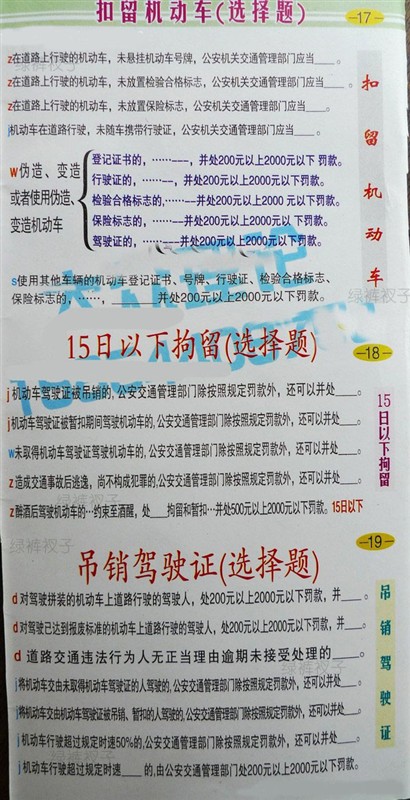 扣留机动车(选择题)
17
z在道路上行驶的机动车，未悬挂机动车号牌，公安机关交通管理部门应当____。
z在道路上行驶的机动车，未放置检验合格标志，公安机关交通管理部门应当____。
z在道路上行驶的机动车，未放置保险标志，公安机关交通管理部门应当____。
j机动车在道路行驶，未随车携带行驶证，公安机关交通管理部门应当____。
w伪造、变造
或者使用伪造、
变造机动车
登记证书的，……---，并处200元以上2000元以下 罚款。
行驶证的，……--，并处200元以上2000元以下罚款。
检验合格标志的,……--并处200元以上2000元以下罚款。
保险标志的，……--并处200元以上2000元以下罚款。
驾驶证的，……---并处200元以上2000元以下罚款。
扣留机动车
s使用其他车辆的机动车登记证书、号牌、行驶证、检验合格标志、
保险标志的，……，______并处200元以上2000元以下罚款。
绿裤衩子
15日以下拘留(选择题)
18
j机动车驾驶证被吊销的,公安交通管理部门除按照规定罚款外，还可以并处____。
j机动车驾驶证被暂扣期间驾驶机动车的,公安交通管理部门除按照规定罚款外，还可以并处____。
w未取得机动车驾驶证驾驶机动车的,公安交通管理部门除按照规定罚款外，还可以并处____。
z造成交通事故后逃逸，尚不构成犯罪的,公安交通管理部门除按照规定罚款外，还可以并处____。
z醉酒后驾驶机动车的…约束至酒醒，处___拘留和暂扣…并处500元以上2000元以下罚款。15日以下
15日以下拘留
绿裤衩子
绿裤衩子
吊销驾驶证(选择题)
19
d对驾驶拼装的机动车上道路行驶的驾驶人，处200元以上2000元以下罚款，并____。
d对驾驶已达到报废标准的机动车上道路行驶的驾驶人，处200元以上2000元以下罚款，并____。
d 道路交通违法行为人无正当理由逾期未接受处理的____。
j将机动车交由未取得机动车驾驶证的人驾驶的,公安交通管理部门除按照规定罚款外，还可以并处____。
j将机动车交由机动车驾驶证被吊销、暂扣的人驾驶的,公安交通管理部门除按照规定罚款外，还可以并处____。
j机动车行驶超过规定时速50%的,公安交通管理部门除按照规定罚款外，还可以并处____。
j机动车行驶超过规定时速____ 的,由公安交通管理部门处200元以上2000元以下罚款。
吊销驾驶证
绿裤衩子
绿裤衩子